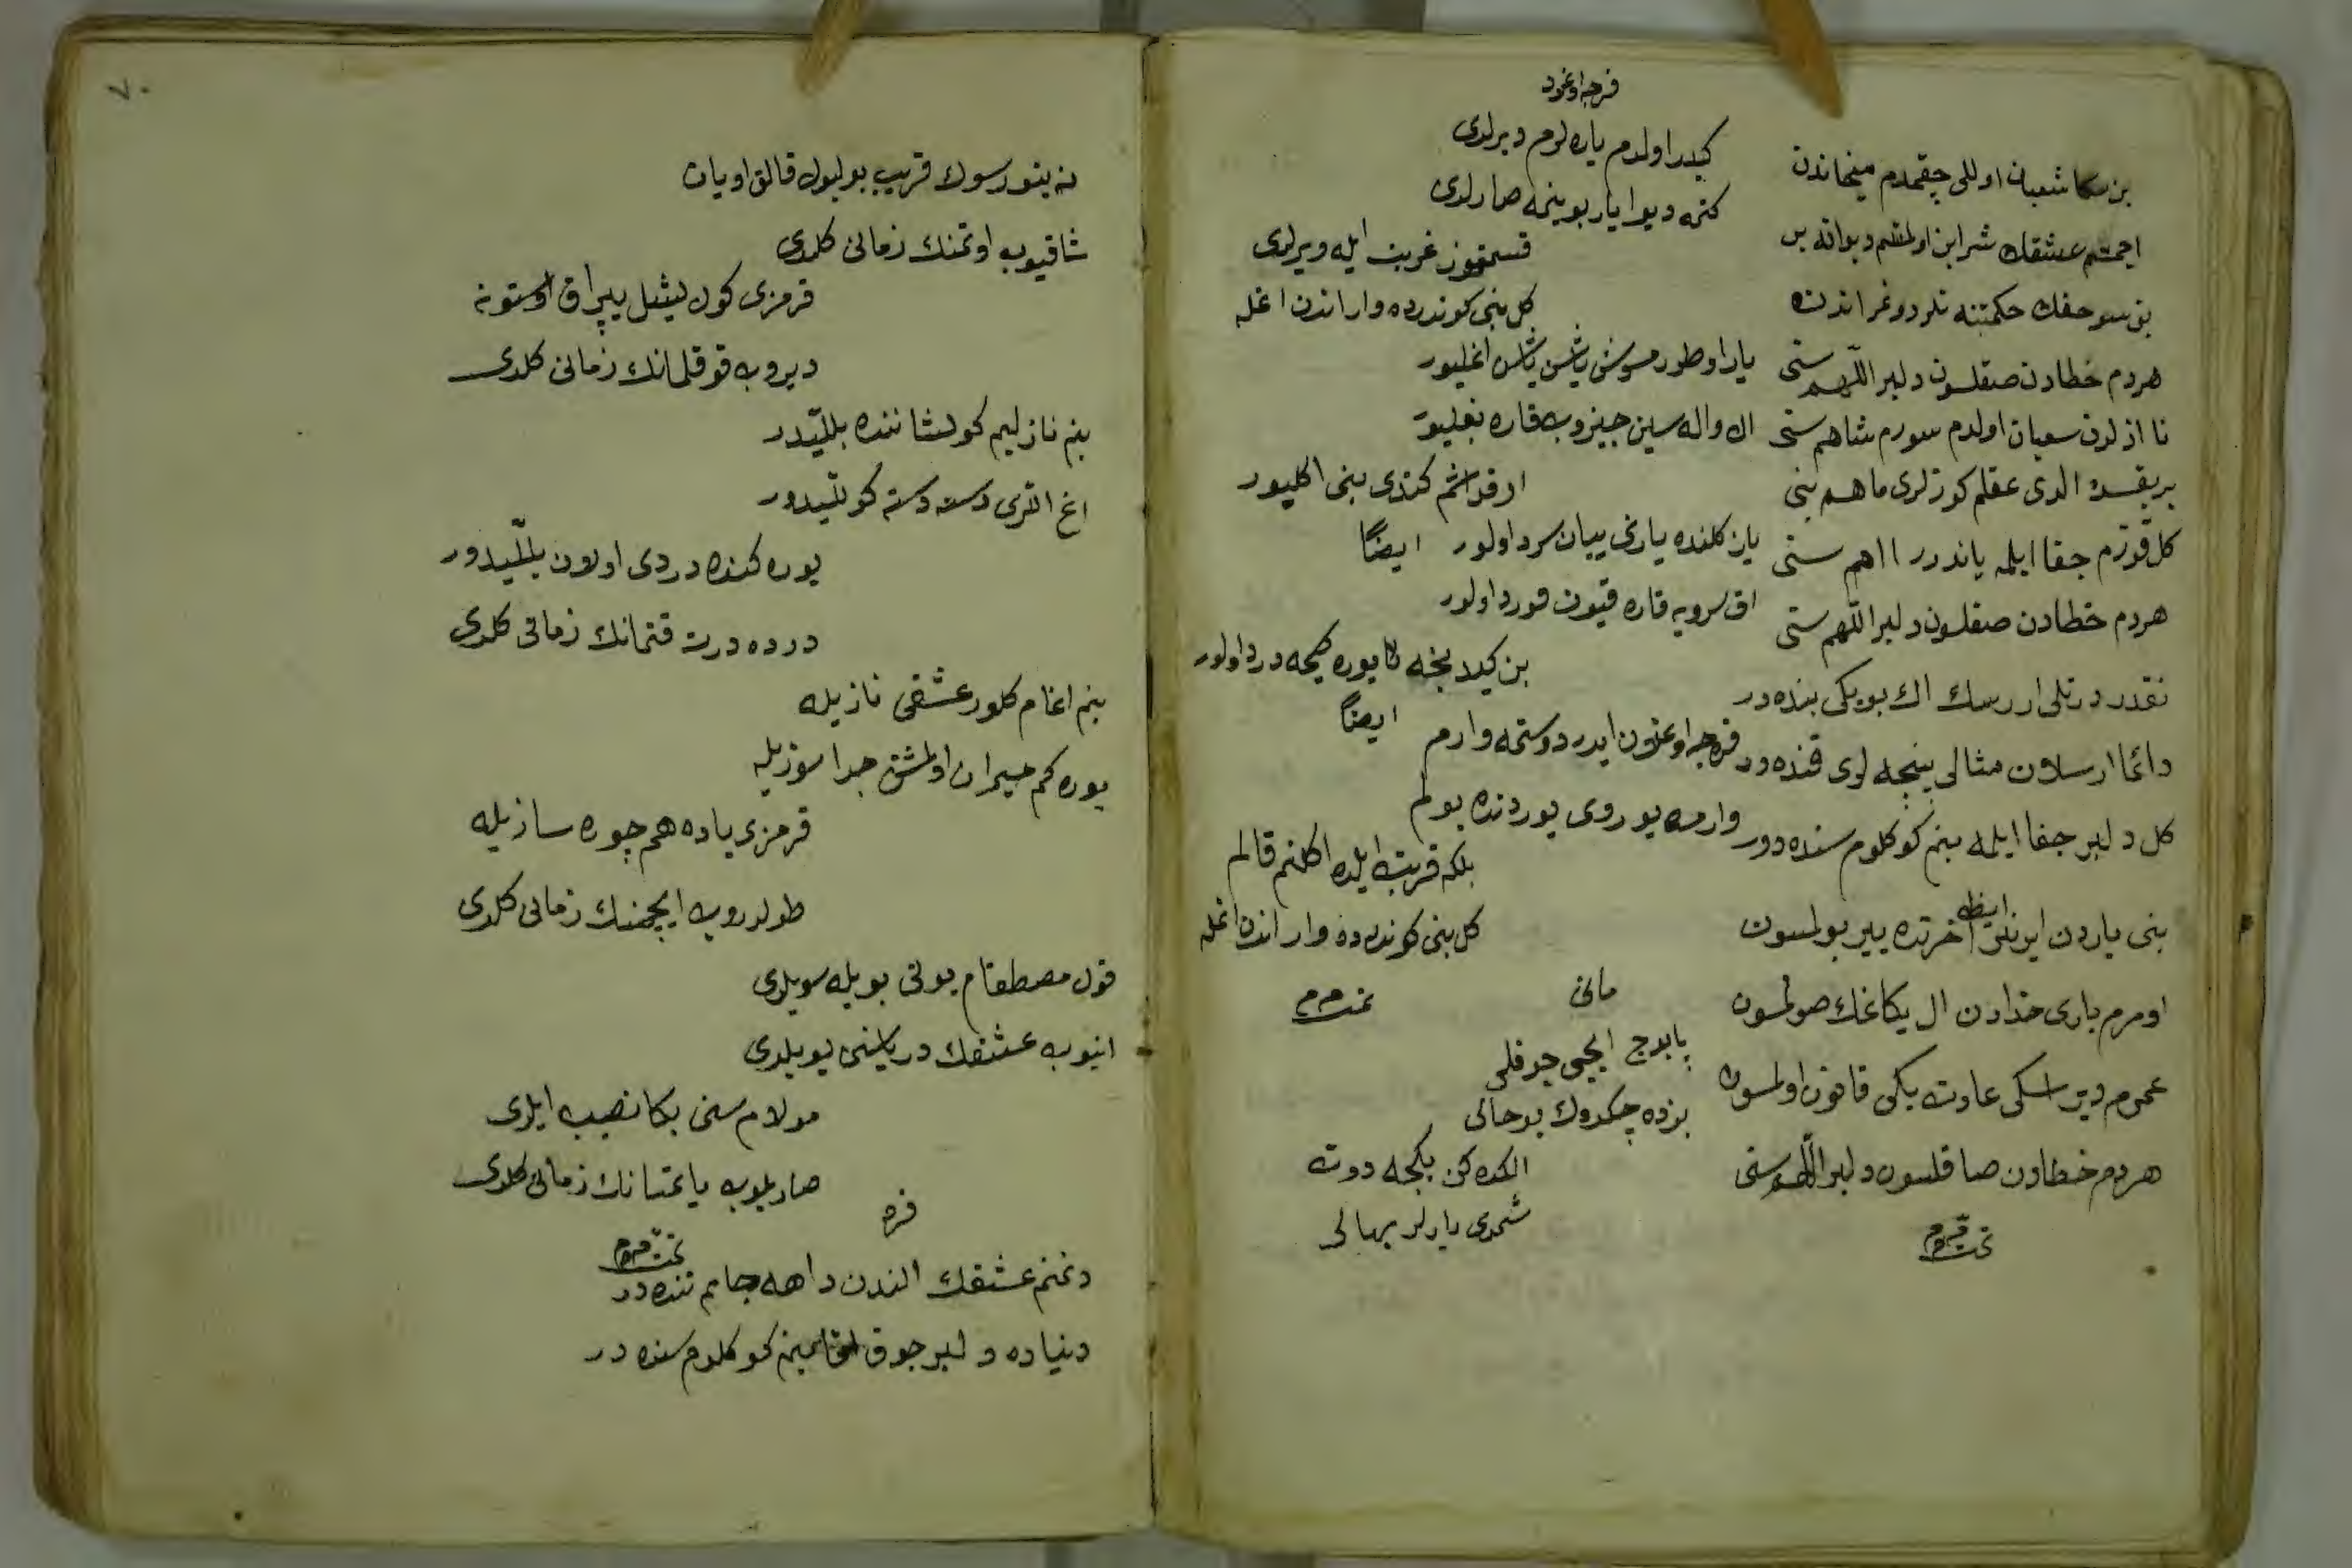 فرجه اوغرد
بن سكا شعبان اوللی چقمدم میخاندن
ایچمشم عشقك شرابن اولمشم دیوانه بن
بن سو حقك حكمتنه نلر دوغر اندن
هردم خطادن صقلسون دلبر اللهم سنی
نا ازلدن سعبان اولدم سورم شاهم سنی
بر بقشده الدی عقلم كوزلری ماهم بنی
كل قوزم جفا ایلمه یاندرر ااهم سنی
هردم خطادن صقلسون دلبر اللهم سنی
نقدر دتلی اررسك اك بویكی بنده در
دائما ارسلان مثالی پنچه لری قنده در
كل دلبر جفا ایلمه بنم كوكلوم سنده دور
ایضا
بنی یاردن ایرنلر اخرتده ییر بولمسون
اومرم باری خدادن ال یكاغك صولمسون
عمروم دیر اسكی عادت یكی قانون اولمسون
هردم خطادن صاقلسون دلبر اللهم سنی
تمت م م
كیدر اولدم یاره لرم دیرلدی
كتمه دیو ایار بوینمه صارلدی
قسمتمز غربت ایله ویرلدی
كل بنی كوندرده وار اندن اغله
یار اوطورمش یاشن یاشن اغلیور
ال واله سین چیزوب قاره بغلیور
ارقداشم كتدی بنی اكلیور
یاز كلنده یارنی بیان سرد اولور
ایضا
اق سرویه قاره قیون قورد اولور
بن كیدنجه نا یوره كیجه درد اولور
ایضا
فرجه اوغلون ایدر دوستمه وارم
وارمه یوروی یوردنده یولم
بلكه قربت ایلده اكلنم قالم
كل بنی كوندرده وار اندن اغله
تمت م م
مانی
پابوج ایچی چوقلی
بزده چكدوك بو حالی
الكده كن بكجه دوت
شمدی یارلر بهالی
٧٠
نه یتورسوك قریب بولبول قالق اویان
شاقیوب اوتمنك زمانی كلدی
قرمزی كول یشیل یپراق اوستونه
دیروب قوقلمانك زمانی كلدی
بنم نازلیم كولشاننده بللیدر
اغ اللری دسته دسته كوللیدور
یوره كنده دردی اولان بللیدور
درده درت قتمانك زمانی كلدی
بنم اغام كلور عشقی نازیله
یوره كم حیران اولمش جدا سوزیله
قرمزی یاده هم چوره سازیله
طولدروب ایچمنك زمانی كلدی
قول مصطفام یونی بویله سویلدی
اینوب عشقك دریاسنی بویلدی
مولام سنی بكا نصیب ایلدی
صاریلوب یاتمانك زمانی كلدی
تمت م م
فره
دغنم عشقك الندن داهه جانم تنده در
دنیاده دلبر چوق بنم كوكلوم سنده در